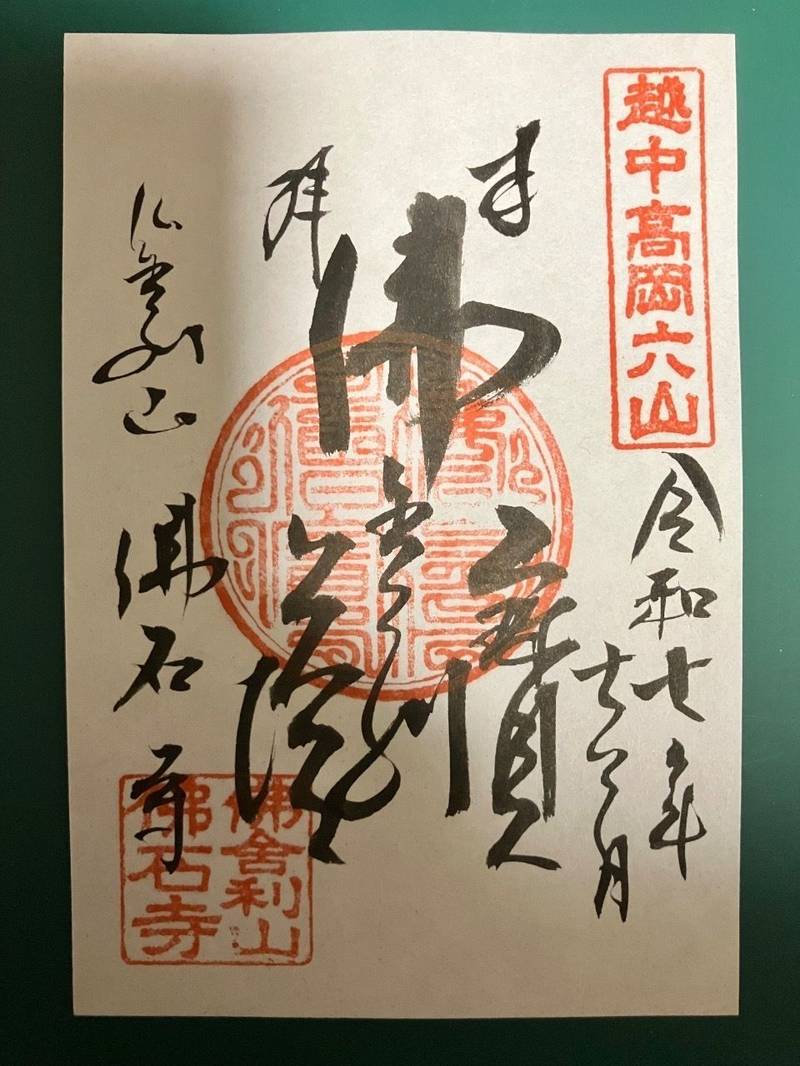 越中高岡六山
令和七年
月
奉
拝
佛
寶
舎利
仏舎利山 佛石寺
佛舎利山
佛石寺